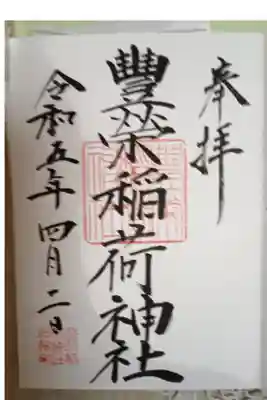 奉拝
豐榮稲荷神社
令和五年四月二日